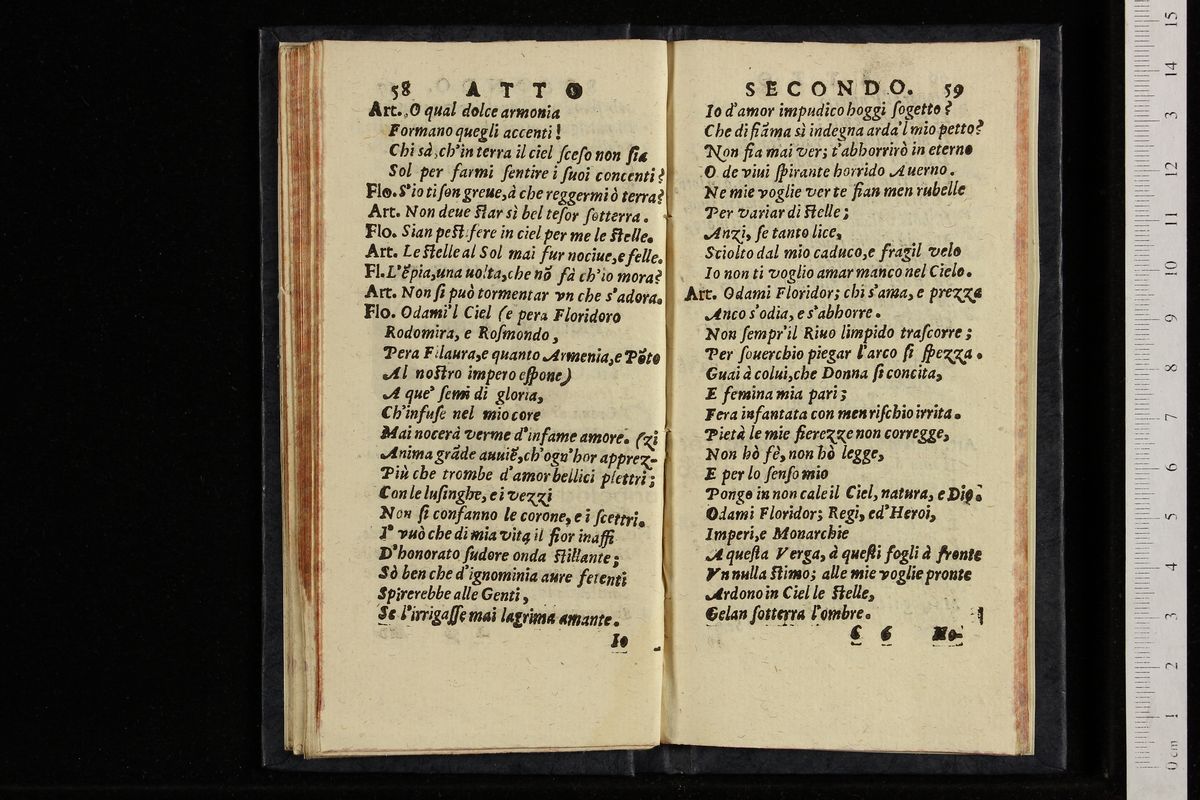 58 ATTO
Art. O qual dolce armonia
Formano quegli accenti!
Chi sà, ch'in terra il ciel ſceſo non ſia
Sol per farmi ſentire i ſuoi concenti?
Flo. S'io ti ſon greue, à che reggermi ò terra?
Art. Non deue ſtar sì bel teſor ſotterra.
Flo. Sian peſtifere in ciel per me le ſtelle.
Art. Le ſtelle al Sol mai fur nociue, e felle.
Fl. L'ẽpia, una uolta, che nõ fà ch'io mora?
Art. Non ſi può tormentar vn che s'adora.
Flo. Odami'l Ciel (e pera Floridoro
Rodomira, e Roſmondo,
Pera Filaura, e quanto Armenia, e Põto
Al noſtro impero eſpone)
A que' ſemi di gloria,
Ch'infuſe nel mio core
Mai nocerà verme d'infame amore. (zi
Anima grãde auuiẽ, ch'ogn'hor apprez-
Più che trombe d'amor bellici plettri;
Con le luſinghe, e i vezzi
Non ſi confanno le corone, e i ſcettri.
I' vuò che di mia vita il fior inaffi
D'honorato ſudore onda ſtillante;
Sò ben che d'ignominia aure fetenti
Spirerebbe alle Genti,
Se l'irrigaſſe mai lagrima amante.
Io
SECONDO. 59
Io d'amor impudico hoggi ſogetto?
Che di fiãma sì indegna arda'l mio petto?
Non fia mai ver; t'abhorrirò in eterno
O de viui ſpirante horrido Auerno.
Ne mie voglie ver te fian men rubelle
Per variar di ſtelle;
Anzi, ſe tanto lice,
Sciolto dal mio caduco, e fragil velo
Io non ti voglio amar manco nel Cielo.
Art. Odami Floridor; chi s'ama, e prezza
Anco s'odia, e s'abhorre.
Non ſempr'il Riuo limpido traſcorre;
Per ſouerchio piegar l'arco ſi ſpezza.
Guai à colui, che Donna ſi concita,
E femina mia pari;
Fera infantata con men riſchio irrita.
Pietà le mie fierezze non corregge,
Non hò fè, non hò legge,
E per lo ſenſo mio
Pongo in non cale il Ciel, natura, e Dio.
Odami Floridor; Regi, ed'Heroi,
Imperi, e Monarchie
A queſta Verga, à queſti fogli à fronte
Vn nulla ſtimo; alle mie voglie pronte
Ardono in Ciel le ſtelle,
Gelan ſotterra l'ombre.
C 6 No-
0 cm 1 2 3 4 5 6 7 8 9 10 11 12 13 14 15